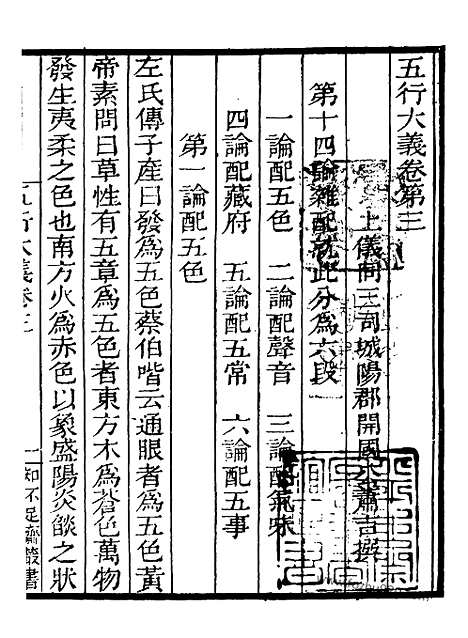 五行大義卷第三
上儀同三司城陽郡開國公蕭吉撰
第十四論雜配就此分爲六段
一論配五色　二論配聲音　三論配氣味
四論配藏府　五論配五常　六論配五事
第一論配五色
左氏傳子產曰發爲五色蔡伯喈云通眼者爲五色黃
帝素問曰草性有五章爲五色者東方木爲蒼色萬物
發生夷柔之色也南方火爲赤色以象盛陽炎燄之狀
五行大義卷三
一知不足齋叢書